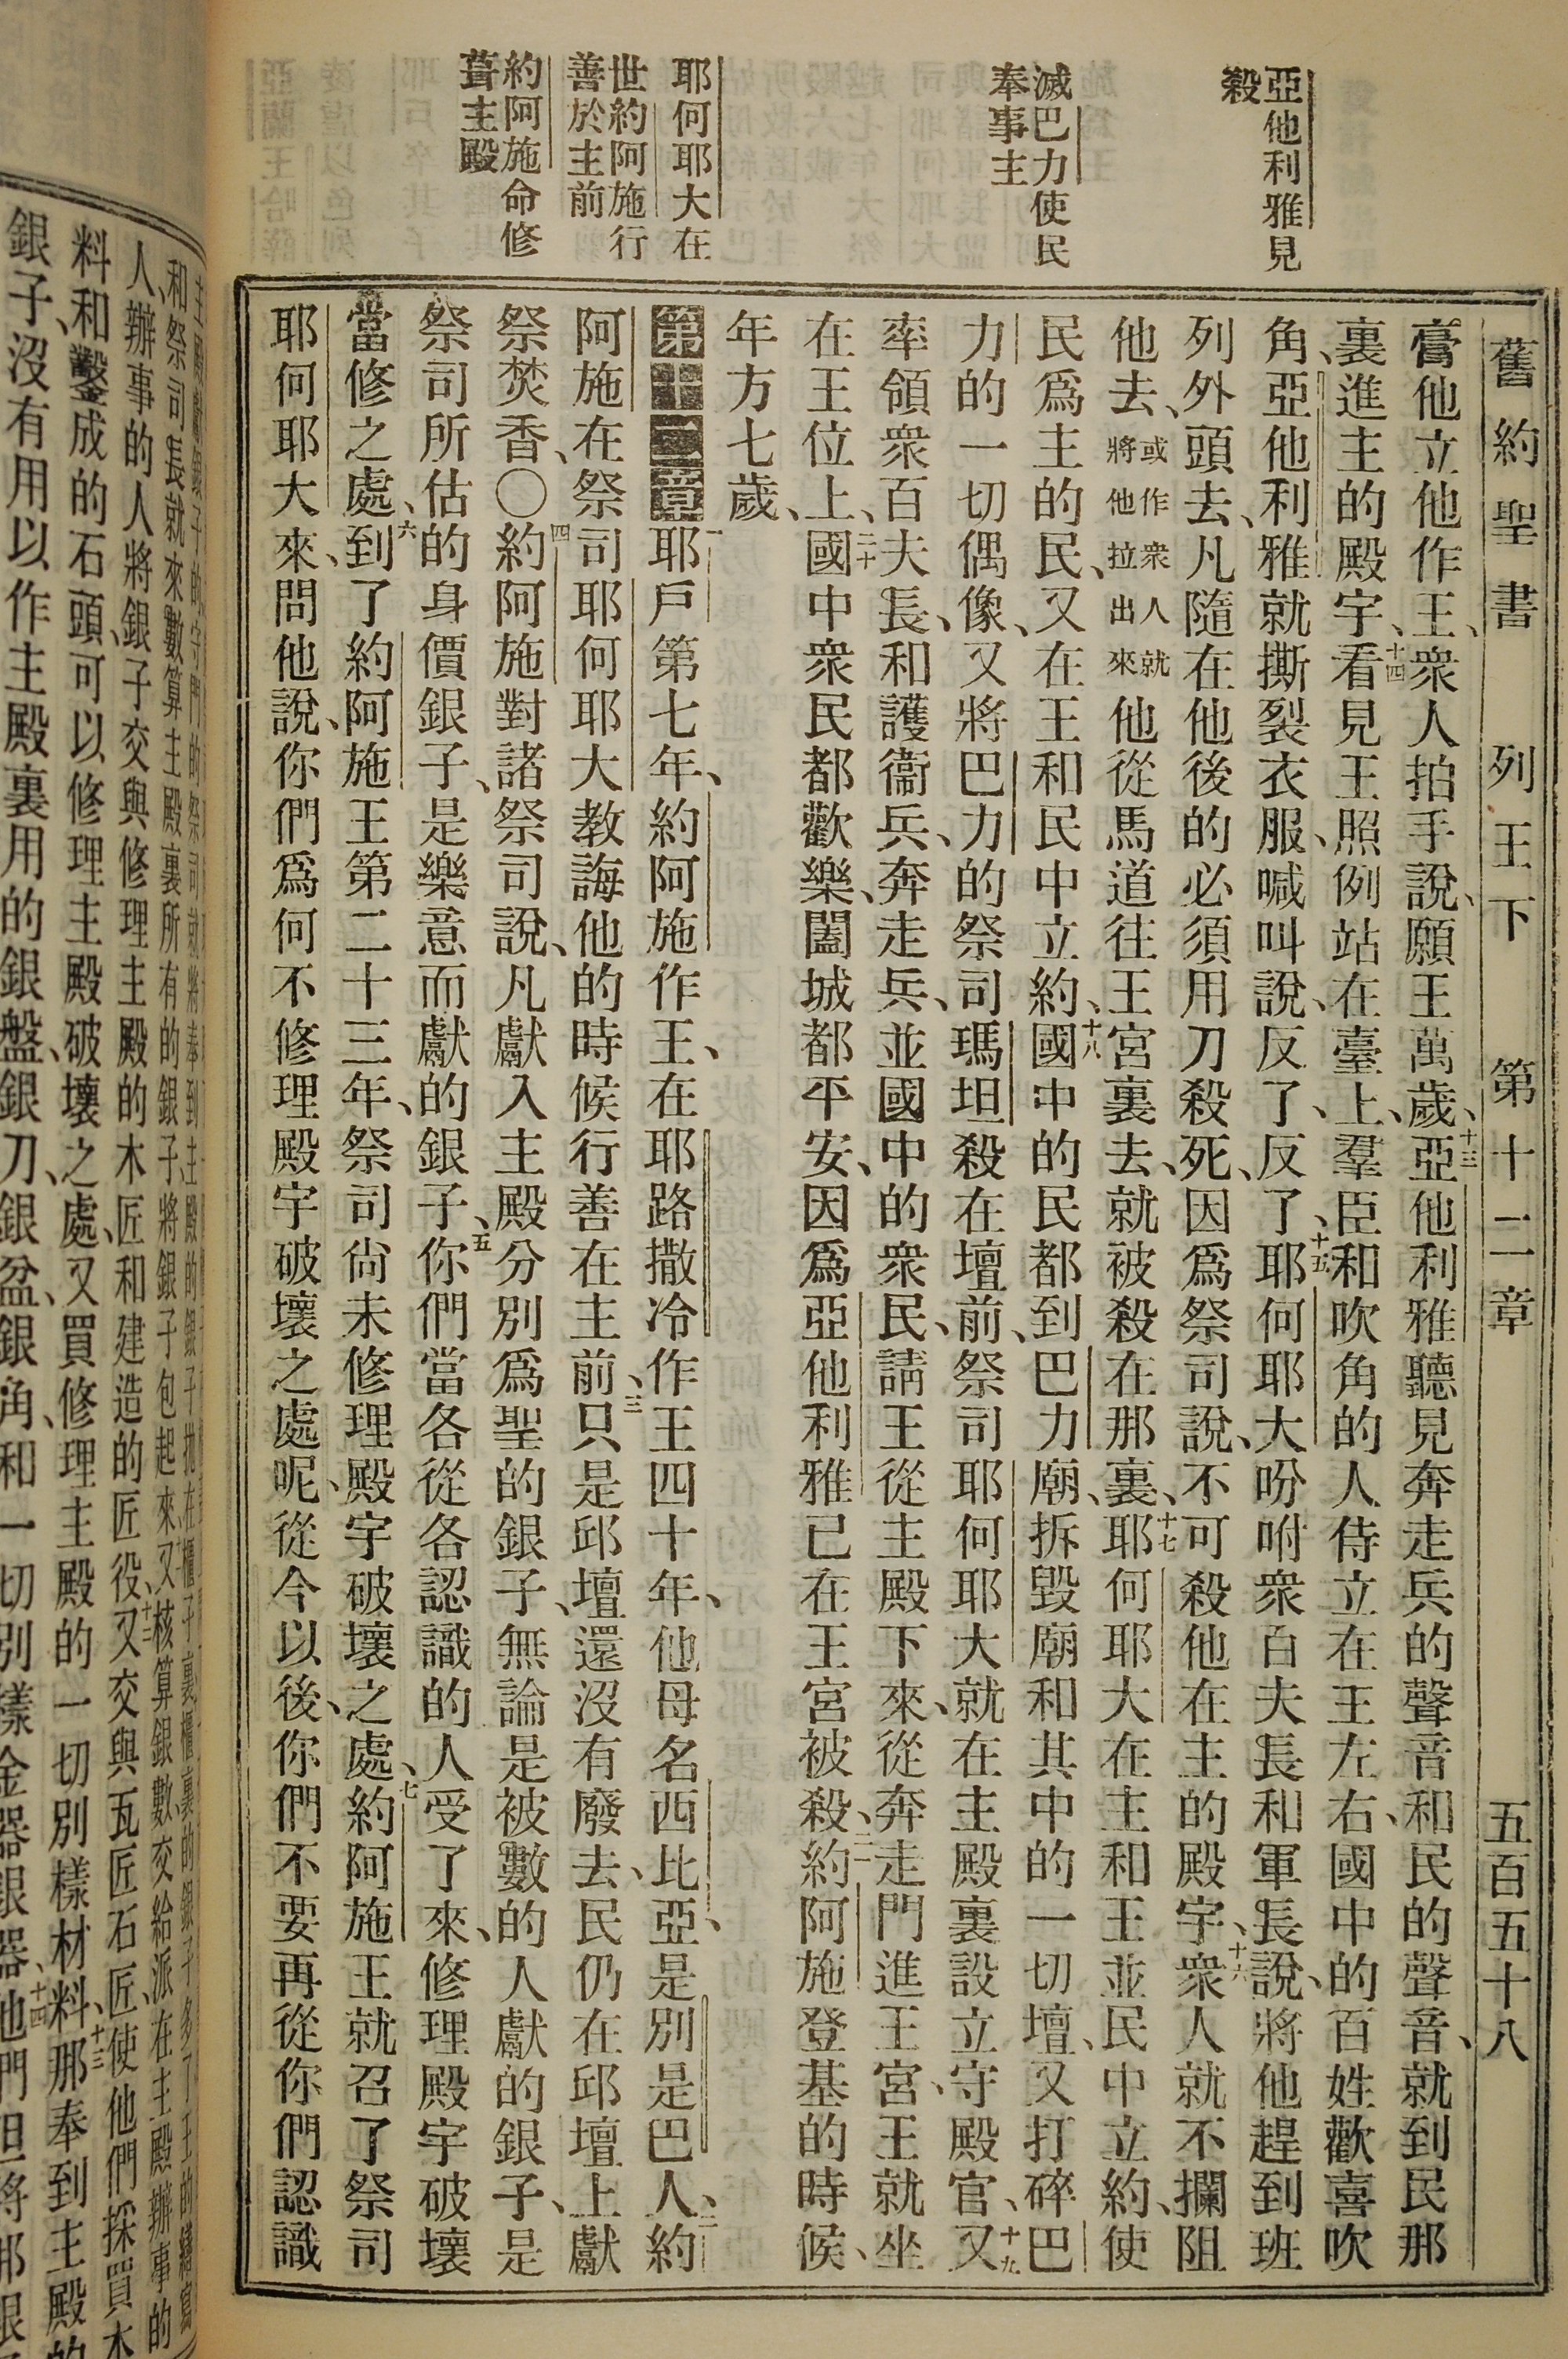 舊約聖書 列王下 第十二章 五百五十八
亞他利雅見
殺
滅巴力使民
奉事主
耶何耶大在
世約阿施行
善於主前
約阿施命修
葺主殿
膏他立他作王、衆人拍手說、願王萬歲、十三亞他利雅聽見奔走兵的聲音和民的聲音、就到民那
裏進主的殿宇、十四看見王照例站在臺上、羣臣和吹角的人侍立在王左右、國中的百姓歡喜吹
角、亞他利雅就撕裂衣服、喊叫說、反了、反了、十五耶何耶大吩咐衆百夫長和軍長說、將他趕到班
列外頭去、凡隨在他後的必須用刀殺死、因爲祭司說、不可殺他在主的殿宇、十六衆人就不攔阻
他去、或作衆人就將他拉出來他從馬道往王宮裏去、就被殺在那裏、十七耶何耶大在主和王並民中立約、使
民爲主的民、又在王和民中立約、十八國中的民都到巴力廟、拆毀廟和其中的一切壇、又打碎巴
力的一切偶像、又將巴力的祭司瑪坦殺在壇前、祭司耶何耶大就在主殿裏設立守殿官、十九又
率領衆百夫長、和護衞兵、奔走兵、並國中的衆民、請王從主殿下來、從奔走門進王宮、王就坐
在王位上、二十國中衆民都歡樂、闔城都平安、因爲亞他利雅已在王宮被殺、二一約阿施登基的時候、
年方七歲、
第十二章一耶戶第七年、約阿施作王、在耶路撒冷作王四十年、他母名西比亞、是別是巴人、二約
阿施在祭司耶何耶大教誨他的時候行善在主前、三只是邱壇還沒有廢去、民仍在邱壇上獻
祭焚香、〇四約阿施對諸祭司說、凡獻入主殿分別爲聖的銀子、無論是被數的人獻的銀子、是
祭司所估的身價銀子、是樂意而獻的銀子、五你們當各從各認識的人受了來、修理殿宇破壞
當修之處、六到了約阿施王第二十三年、祭司尙未修理殿宇破壞之處、七約阿施王就召了祭司
耶何耶大來、問他說、你們爲何不修理殿宇破壞之處呢、從今以後、你們不要再從你們認識
和祭司長就來數算主殿裏所有的銀子、將銀子包起來、又核算銀數交給派在主殿辦事的
人、辦事的人將銀子交與修理主殿的木匠和建造的匠役、十二又交與瓦匠石匠、使他們採買木
料、和鑿成的石頭、可以修理主殿破壞之處、又買修理主殿的一切別樣材料、十三那奉到主殿的
銀子沒有用以作主殿裏用的銀盤、銀刀、銀盆、銀角、和一切別樣金器銀器、十四